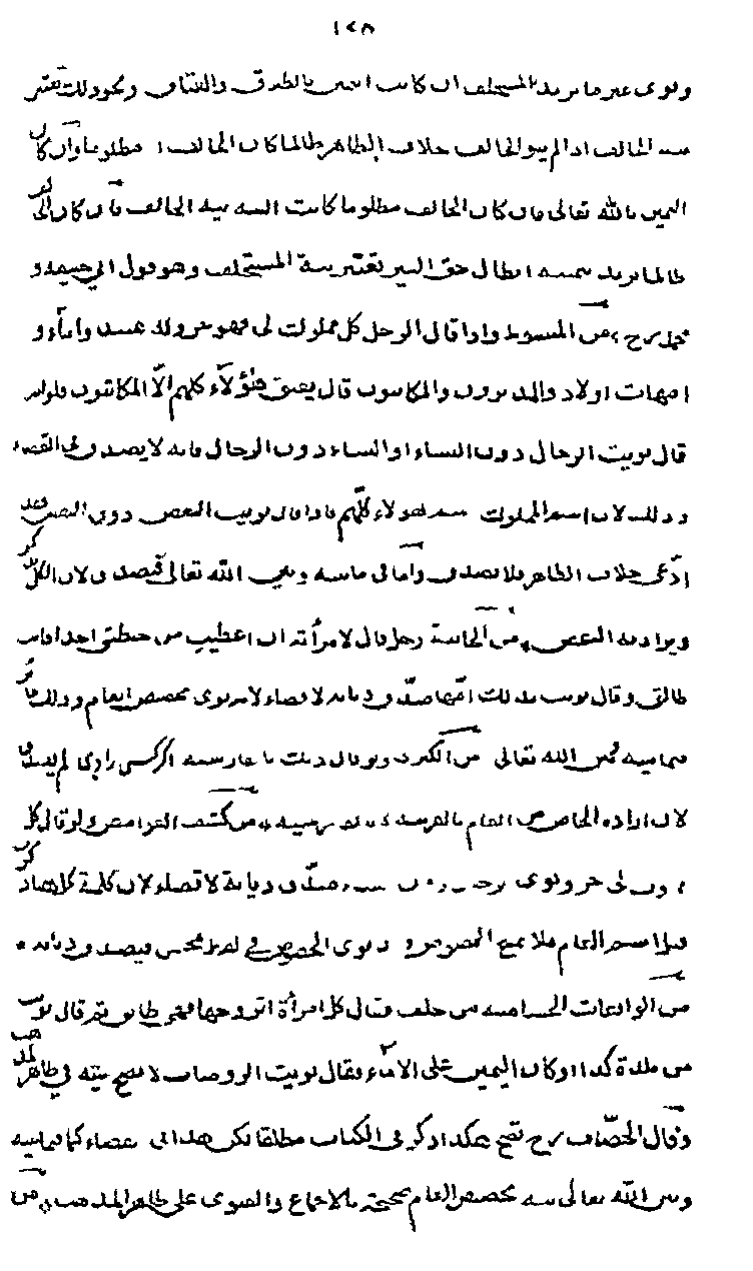 ١٢٨
ونوى غير ما يريد المستحلف ان كانت اليمين بالطلاق والعتاق ونحو ذلك تعتبر
نية الحالف اذا لم ينو الحالف خلاف الظاهر ظالما كان الحالف او مظلوما وان كان
اليمين بالله تعالى فان كان الحالف مظلوما كانت النية نية الحالف فان كان الحالف
ظالما يريد بيمينه ابطال حق الغير تعتبر نية المستحلف وهو قول ابي حنيفة و
محمد رح من المبسوط واذا قال الرجل كل مملوك لي فهو حر وله عبيد واماء و
امهات اولاد والمدبرون والمكاتبون قال يعتق هؤلاء كلهم الا المكاتبون فلو انه
قال نويت الرجال دون النساء او النساء دون الرجال فانه لا يصدق في القضاء
وذلك لان اسم المملوك هؤلاء كلهم فاذا قال نويت البعض دون البعض فقد
ادعى خلاف الظاهر فلا يصدق واما في ما بينه وبين الله تعالى فيصدق لان الكل يذكر
ويراد به البعض من الخانية رجل قال لامرأته ان اعطيت من حنطتي احدا فانت
طالق وقال نويت بذلك امها صدق ديانة لا قضاء لانه نوى تخصيص العام وذلك جائز
فيما بينه وبين الله تعالى من الكبرى ولو قال
لان ارادة الخاص من العام من كشف الغوامض ولو قال كل
صدق ديانة لا قضاء لان كلمة كل
العام فلا يمنع الخصوص ونوى الخصوص في فيصدق ديانة
من الواقعات الحسامية من حلف وقال كل امرأة اتزوجها فهي طالق ثم قال نويت
من بلدة كذا او كان اليمين على الاماء فقال نويت لا تصح نيته في ظاهر المذهب
وقال الخصاف رح تصح هكذا ذكر في الكتاب مطلقا لكن هذا في القضاء اما فيما بينه
وبين الله تعالى نية تخصيص العام صحيحة بالاجماع والفتوى على ظاهر المذهب من